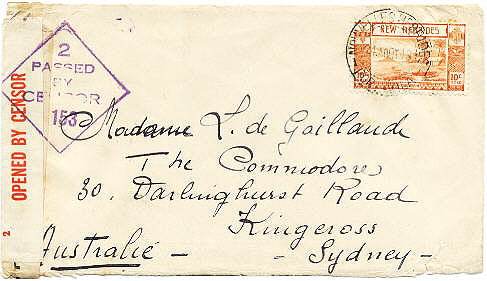 2
PASSED
BY
CENSOR
153
OPENED BY CENSOR
2
NEW HEBRIDES
10c
Madame L. de Gaillande
The Commodores
30, Darlinghurst Road
Kingcross
Australie - Sydney -